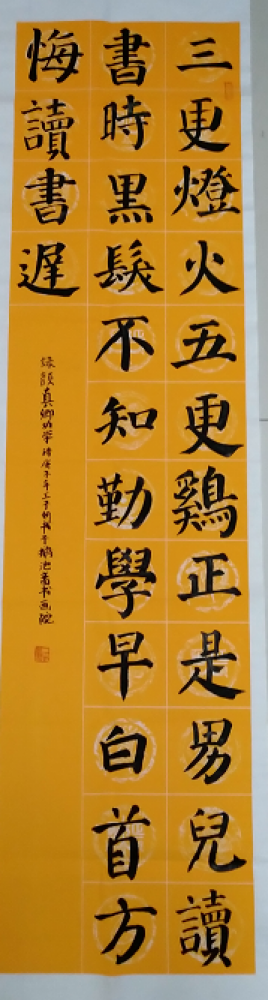 三更燈火五更鷄正是男兒讀
書時黑髮不知勤學早白首方
悔讀書遲
錄顏真卿勸學詩庚子年王于彬书于鵝池斋书画院